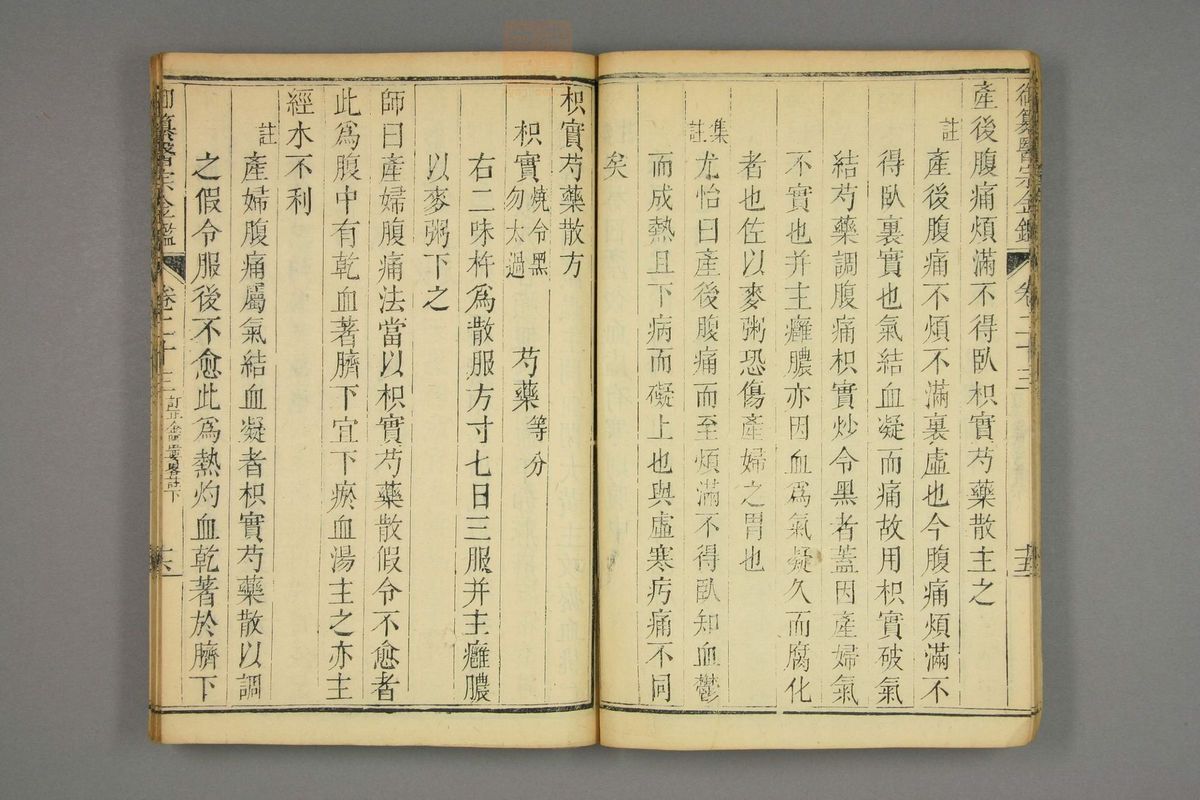 御纂醫宗金鑑 卷二十三
產後腹痛煩滿不得臥枳實芍藥散主之
註
產後腹痛不煩不滿裏虛也今腹痛煩滿不
得臥裏實也氣結血凝而痛故用枳實破氣
結芍藥調腹痛枳實炒令黑者蓋因產婦氣
不實也并主癰膿亦因血為氣凝久而腐化
者也佐以麥粥恐傷產婦之胃也
集註
尤怡曰產後腹痛而至煩滿不得臥知血鬱
而成熱且下病而礙上也與虛寒㽲痛不同
矣
枳實芍藥散方
枳實燒令黑勿太過 芍藥等分
右二味杵為散服方寸七日三服并主癰膿
以麥粥下之
師曰產婦腹痛法當以枳實芍藥散假令不愈者
此為腹中有乾血著臍下宜下瘀血湯主之亦主
經水不利
註
產婦腹痛屬氣結血凝者枳實芍藥散以調
之假令服後不愈此為熱灼血乾著於臍下
御纂醫宗金鑑 卷二十三 訂正金匱要略註下 十六